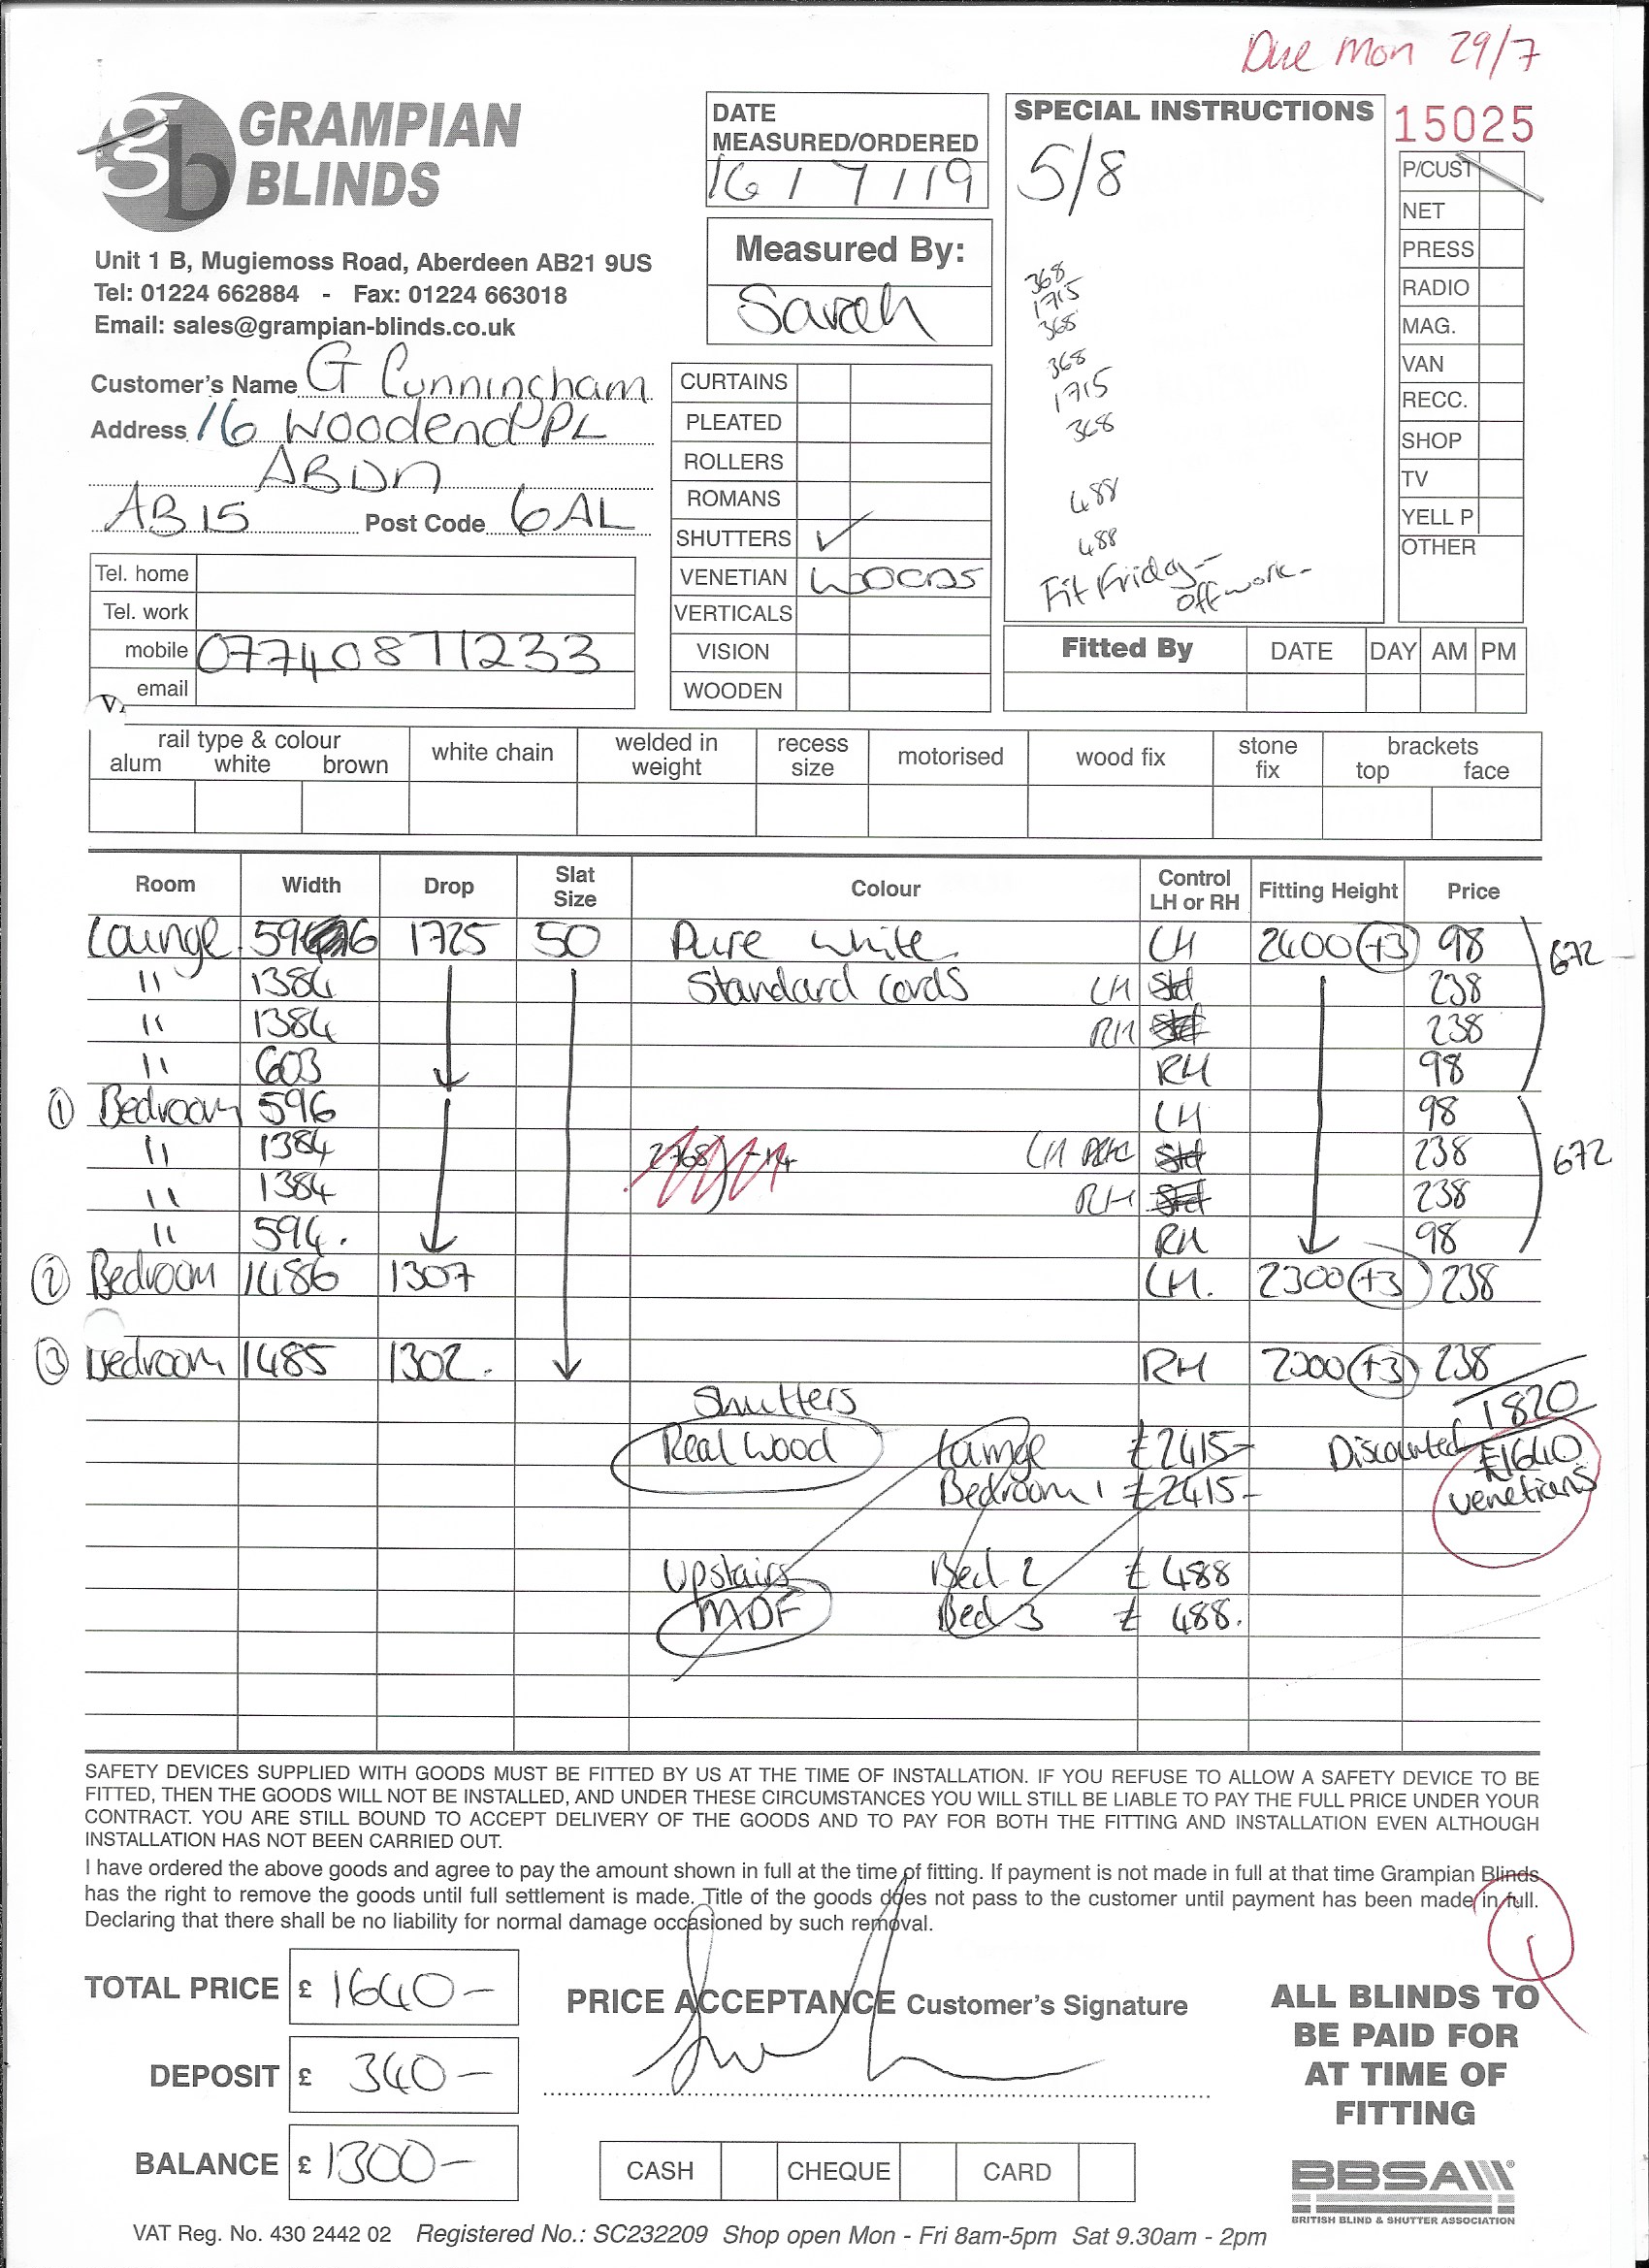 Due Mon 29/7
gb GRAMPIAN BLINDS
Unit 1 B, Mugiemoss Road, Aberdeen AB21 9US
Tel: 01224 662884 - Fax: 01224 663018
Email: sales@grampian-blinds.co.uk
Customer's Name G Cunningham
Address 16 Woodend PL
ABDN
AB15 Post Code 6AL
Tel. home
Tel. work
mobile 07740871233
email
DATE
MEASURED/ORDERED
16/7/19
Measured By:
Sarah
CURTAINS
PLEATED
ROLLERS
ROMANS
SHUTTERS ✓
VENETIAN WOODS
VERTICALS
VISION
WOODEN
SPECIAL INSTRUCTIONS
5/8
368
1715
368
368
1715
368
488
488
Fit Friday -
off work -
15025
P/CUST
NET
PRESS
RADIO
MAG.
VAN
RECC.
SHOP
TV
YELL P
OTHER
Fitted By DATE DAY AM PM
rail type & colour
alum white brown
white chain
welded in weight
recess size
motorised
wood fix
stone fix
brackets
top face
Room Width Drop Slat Size Colour Control LH or RH Fitting Height Price
Lounge 596 1725 50 Pure White LH 2400 (+3) 98
" 1384 Standard Cords LH Std 238 672
" 1384 RH Std 238
" 603 RH 98
① Bedroom 596 LH 98
" 1384 2768 LH Std 238 672
" 1384 RH Std 238
" 594. RH 98
② Bedroom 1486 1307 LH. 2300 (+3) 238
③ Bedroom 1485 1302. RH 2300 (+3) 238
Shutters 1820
Real Wood Lounge £2415- Discounted £1640
Bedroom 1 £2415- Venetians
Upstairs Bed 2 £488
MDF Bed 3 £488.
SAFETY DEVICES SUPPLIED WITH GOODS MUST BE FITTED BY US AT THE TIME OF INSTALLATION. IF YOU REFUSE TO ALLOW A SAFETY DEVICE TO BE
FITTED, THEN THE GOODS WILL NOT BE INSTALLED, AND UNDER THESE CIRCUMSTANCES YOU WILL STILL BE LIABLE TO PAY THE FULL PRICE UNDER YOUR
CONTRACT. YOU ARE STILL BOUND TO ACCEPT DELIVERY OF THE GOODS AND TO PAY FOR BOTH THE FITTING AND INSTALLATION EVEN ALTHOUGH
INSTALLATION HAS NOT BEEN CARRIED OUT.
I have ordered the above goods and agree to pay the amount shown in full at the time of fitting. If payment is not made in full at that time Grampian Blinds
has the right to remove the goods until full settlement is made. Title of the goods does not pass to the customer until payment has been made in full.
Declaring that there shall be no liability for normal damage occasioned by such removal.
TOTAL PRICE £ 1640-
DEPOSIT £ 340-
BALANCE £ 1300-
PRICE ACCEPTANCE Customer's Signature
CASH CHEQUE CARD
ALL BLINDS TO
BE PAID FOR
AT TIME OF
FITTING
BBSA
BRITISH BLIND & SHUTTER ASSOCIATION
VAT Reg. No. 430 2442 02 Registered No.: SC232209 Shop open Mon - Fri 8am-5pm Sat 9.30am - 2pm